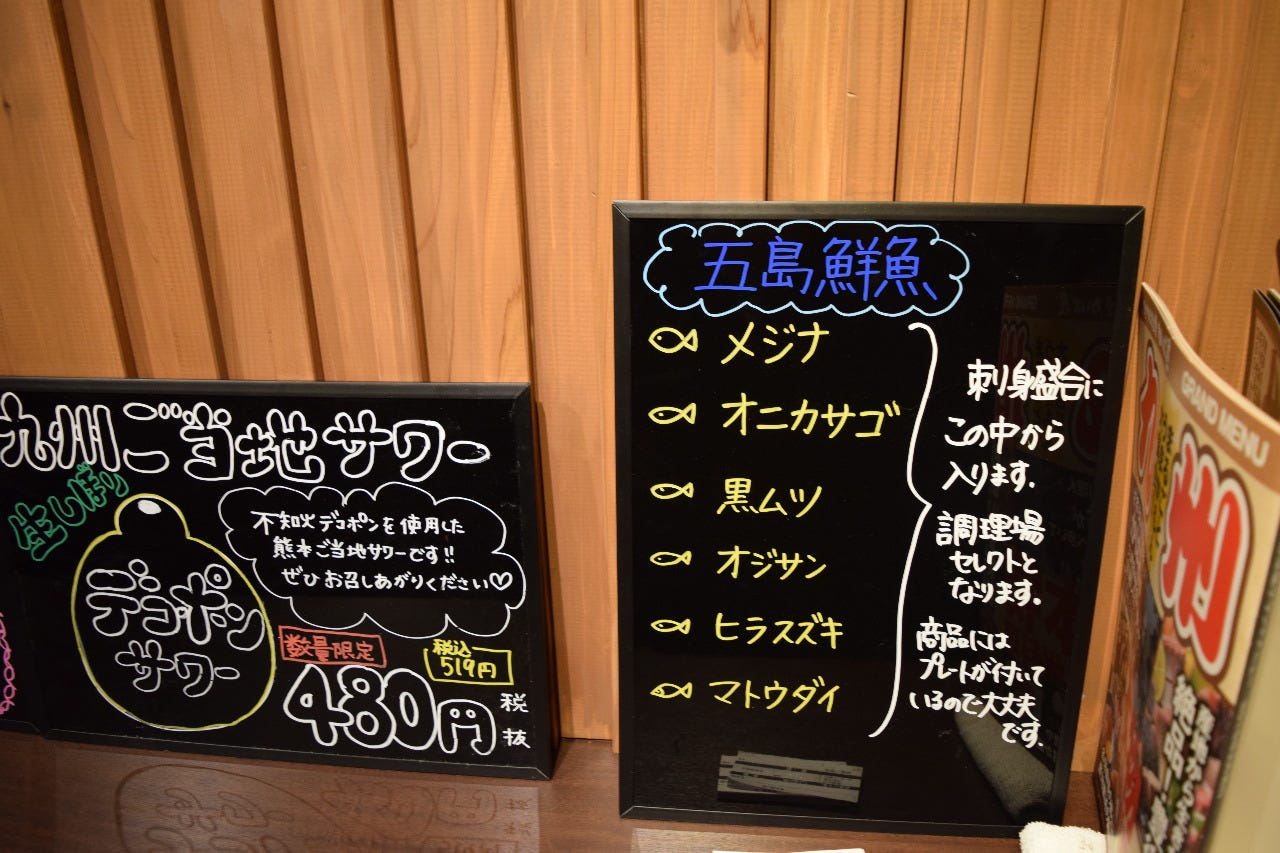 九州ご当地サワー
生しぼり
不知火デコポンを使用した
熊本ご当地サワーです!!
ぜひお召しあがりください♡
デコポン
サワー
数量限定
税込
519円
480円
税
抜
五島鮮魚
メジナ
オニカサゴ
黒ムツ
オジサン
ヒラスズキ
マトウダイ
刺身盛合に
この中から
入ります.
調理場
セレクトと
なります.
商品には
プレートが付いて
いるので大丈夫
です.
GRAND MENU
州
絶品